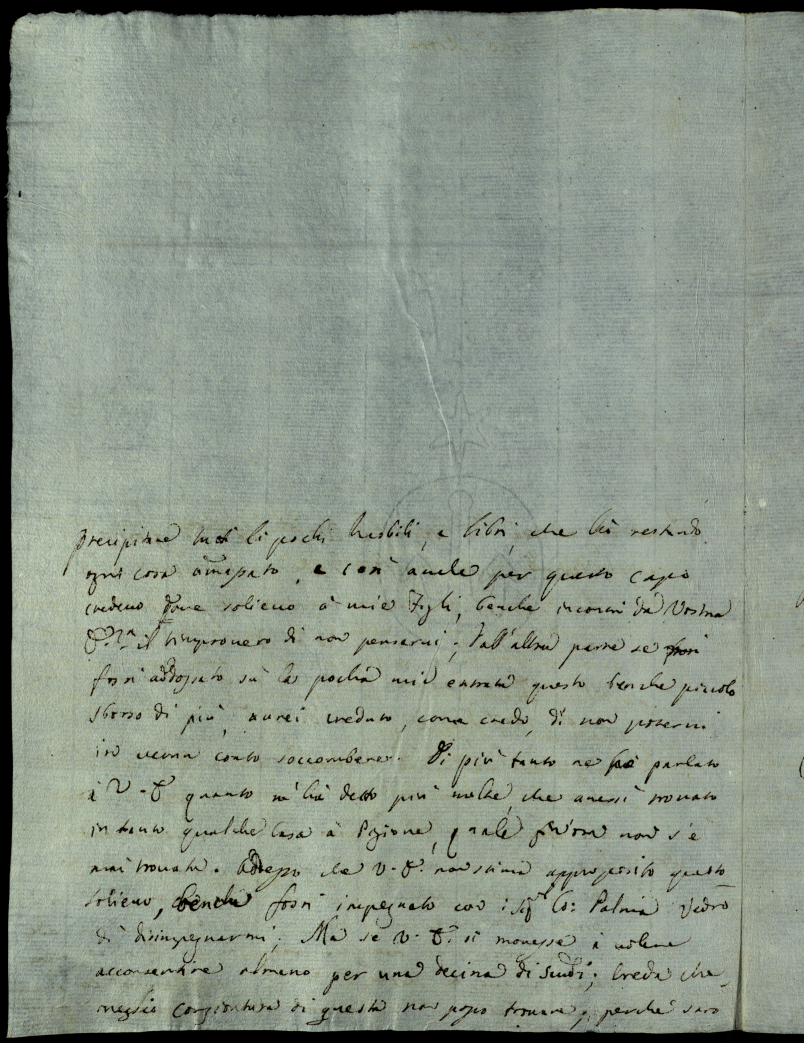 precipitare tutti li pochi mobili, e libri, che hà restando
ogni cosa amassato, e così anche per questo capo
credevo dare solievo à miei Figli, benche incorri da Vostra
il rimprovero di non pensarvi; dall'altra parte se
fossi addossato sù la pocha mia entrata questo benche piccolo
sborso di più, avrei creduto, come credo, di non potervi
in verun conto soccombere. Di più tanto ne hò parlato
à V. E. quanto m'hà detto più volte, che avessi trovato
in tanto qualche Casa à Pigione, quale fin'ora non s'è
mai trovata. Adesso che V. E. non stima approposito questo
solievo, benche fossi impegnato con i Sig.ri Co: Palma vedrò
di disimpegnarmi; Ma se V. E. si movesse à volere
acconsentire almeno per una decina di Scudi; Creda che
meglio congiontura di questa non posso trovare, perche sarò